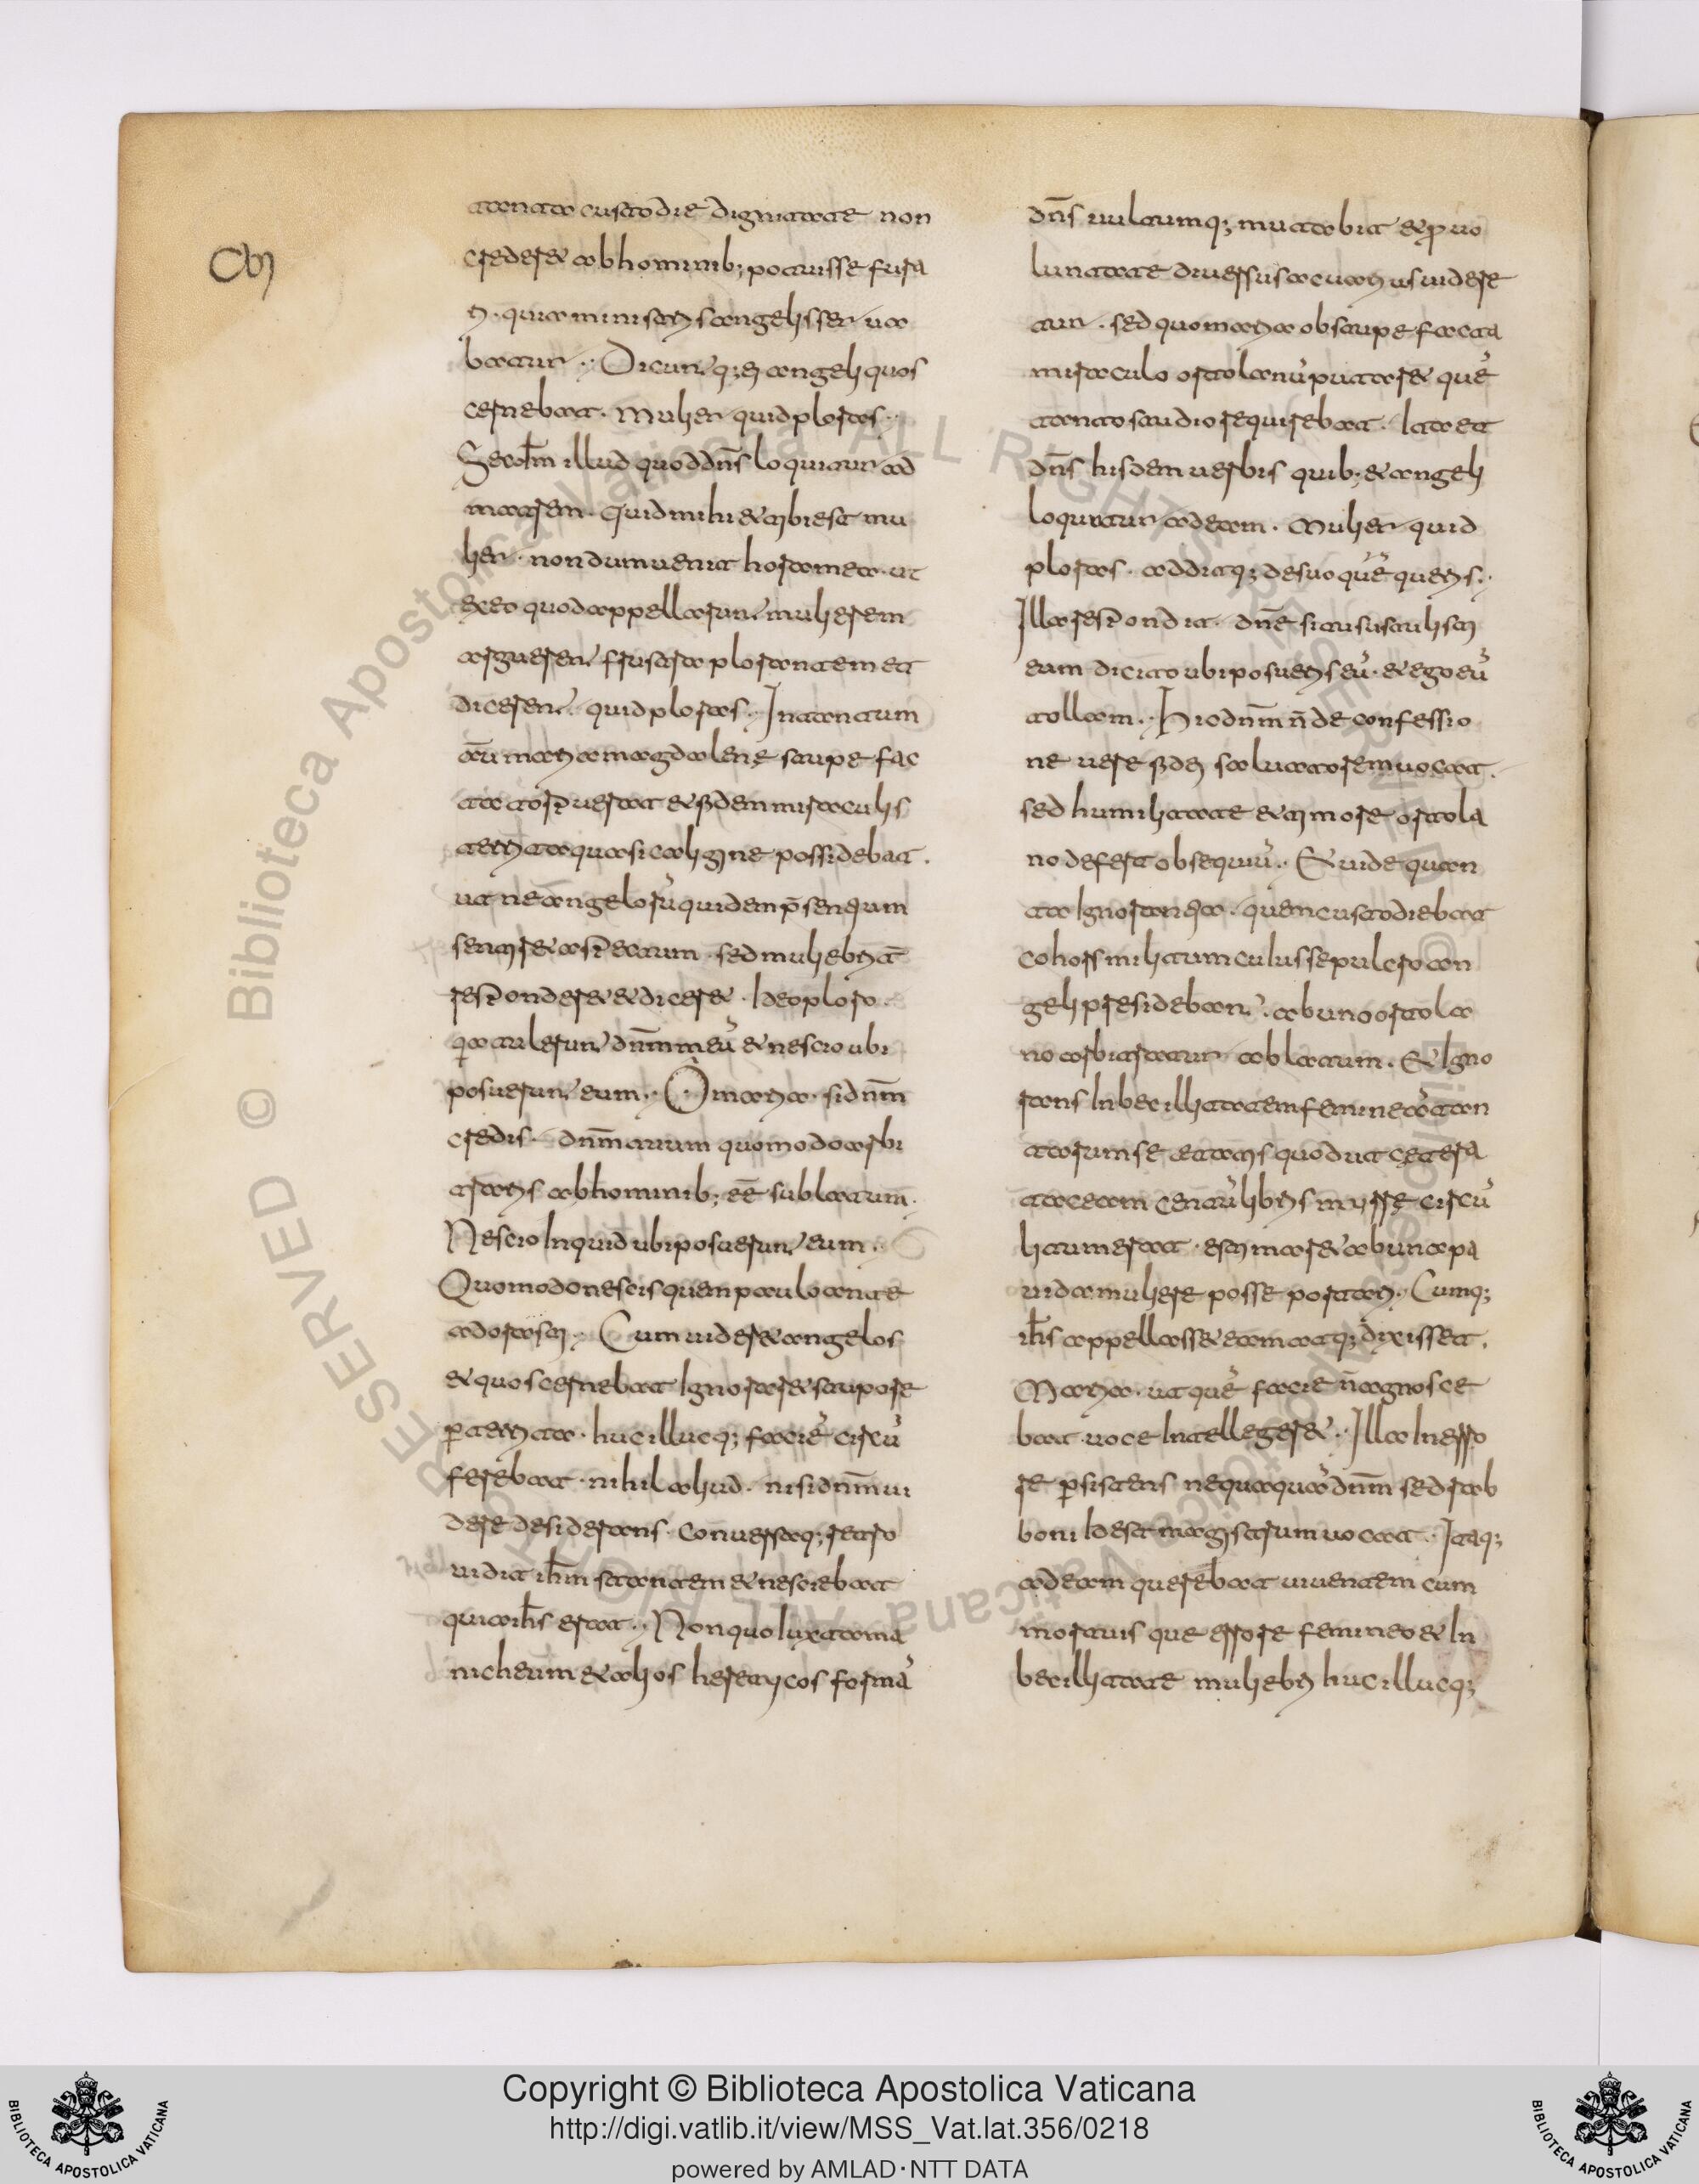 tanta custodie dignitate non
crederet ab hominib; potuisse fura
ri. quia ministris angelis serua
batur·· Dicuntq; ei angeli quos
cernebat. Mulier quid ploras··
Secdm illud quod dns loquitur ad
matrem. quid mihi et tibi est mu
lier. nondum uenit hora mea. ut
ex eo quod appellarunt mulierem
arguerent frustra plorantem et
dicerent. quid ploras·· In tantum
aū maria magdalene stupefac
ta torpuerat et fidem miraculis
territa quasi caligine possidebat.
ut ne angelorū quidem p̄sentium
sentiret aspectum. sed muliebrit̄
responderet et diceret. Ideo ploro.
qia tulerunt dnm meū et nescio ubi
posuerunt eum·· O maria. si dnm
credis. dnm tuum quomodo arbi
traris ab hominib; eē sublatum.
Nescio Inquid ubi posuerunt eum··
Quomodo nescis quem paulo ante
adorasti·· Cum uideret angelos
et quos cernebat Ignoraret stupore
perterrita. huc illucq; faciē circū
ferebat. nihil aliud. nisi dnm ui
dere desiderans. Conuersaq; retro
uidit ihm stantem et nesciebat
quia ihs erat·· Non quo iuxta ma
nicheum et alios hereticos formā
dns uultumq; mutabit et pro uo
luntate diuersus ac uarius uidere
tur. sed quo maria obstupefacta
miraculo ortolanū putaret quē
tanto studio requirebat. Itaet
dns hisdem uerbis quib; et angeli
loquitur ad eam. Mulier quid
ploras. additq; de suo quē queris··
Illa respondit. dnē si tu sustulisti
eum dicito ubi posueris eū. et ego eū
tollam·· Hic dnm n̄ de confessio
ne uere fidei saluatorem uocat.
sed humilitate et timore ortola
no defert obsequiū·· Et uide quan
ta Ignorantia. quem custodiebat
cohors militum cuius sepulcro an
geli presidebant. ab uno ortola
no arbitratur ablatum. Et Igno
rans Inbecillitatem femineā tan
torum se etatis quod ut cetera
taceam centū libris mirre circū
litum erat. estimaret ab una pa
uida muliere posse portari·· Cumq;
ihs appellasset eam atq; dixisset.
Maria. ut quē facie n̄ agnosce
bat uoce Intellegeret·· Illa In erro
re persistens nequaquā dnm sed rab
boni Id est magistrum uocat·· Itaq;
ad eam querebat uiuentem cum
mortuis que errore femineo et In
becillitate muliebri huc illucq;
Copyright © Biblioteca Apostolica Vaticana
http://digi.vatlib.it/view/MSS_Vat.lat.356/0218
powered by AMLAD·NTT DATA